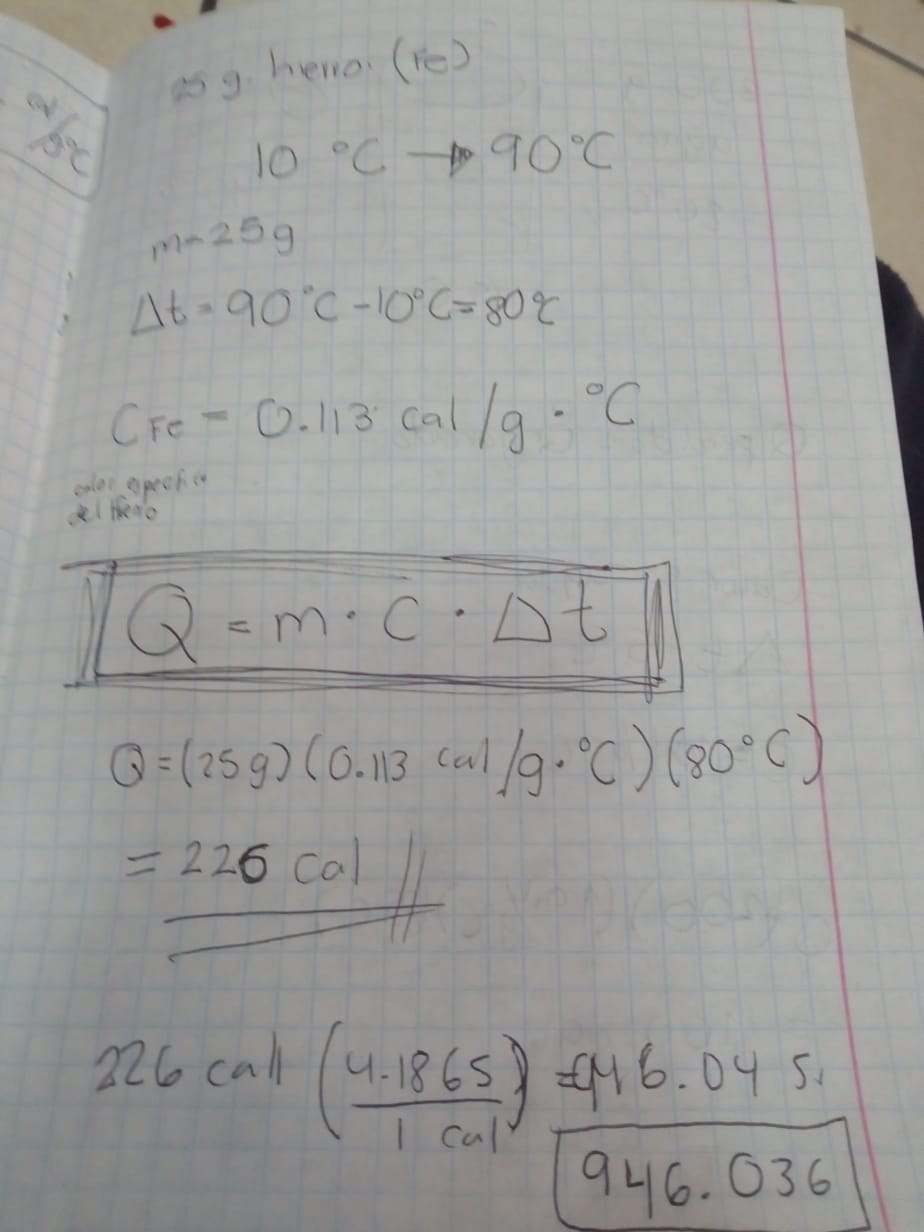 cal
/g°C
25 g. hierro. (Fe)
10 °C → 90°C
m = 25g
Δt = 90°C - 10°C = 80°C
CFe = 0.113 cal /g · °C
calor especifico
del Hierro
Q = m · C · Δt
Q = (25g) (0.113 cal /g · °C) (80°C)
= 226 cal //
226 cal (4.186 5 / 1 cal) = 946.04 5.
946.036